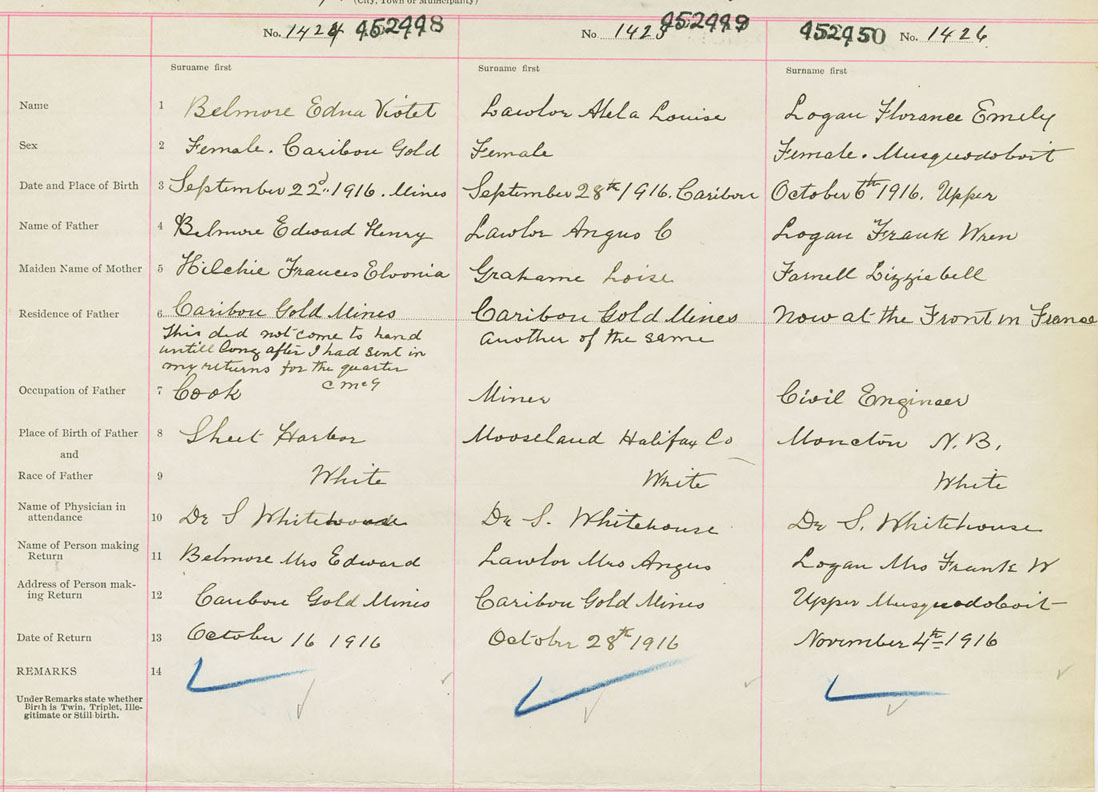 (City, Town or Municipality)
No. 1424 952998 No 1425 952999 952950 No. 1426
Suruame first Surname first Surname first
Name 1 Belmore Edna Violet Lawlor Louise Logan Florance Emely
Sex 2 Female. Caribou Gold Female Female. Musquodoboit
Date and Place of Birth 3 September 22d.. 1916. Mines September 28th 1916. Caribou October 6th 1916. Upper
Name of Father 4 Belmore Edward Henry Lawlor Angus C Logan Frank Wren
Maiden Name of Mother 5 Hilchie Frances Elvonia Grahame Loise Farnell Lizziebell
Residence of Father 6 Caribou Gold Mines Caribou Gold Mines Now at the Front in France
This did not come to hand another of the same
untill long after I had sent in
my returns for the quarter
C McG
Occupation of Father 7 Cook Miner Civil Engineer
Place of Birth of Father 8 Sheet Harbor Mooseland Halifax Co Moncton N.B.
and
Race of Father 9 White White White
Name of Physician in
attendance 10 Dr S Whitehouse Dr S. Whitehouse Dr S. Whitehouse
Name of Person making
Return 11 Belmore Mrs Edward Lawlor Mrs Angus Logan Mrs Frank W
Address of Person mak-
ing Return 12 Caribou Gold Mines Caribou Gold Mines Upper Musquodoboit
Date of Return 13 October 16 1916 October 28th 1916 November 4th 1916
REMARKS 14
Under Remarks state whether
Birth is Twin, Triplet, Ille-
gitimate or Still-birth.